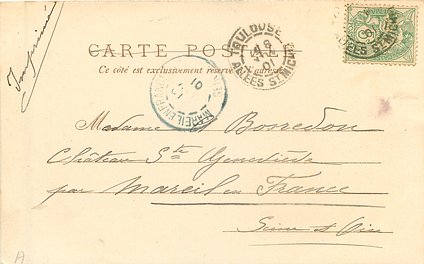 Imprimé
CARTE POSTALE
Ce côté est exclusivement réservé à l'adresse
TOULOUSE
ALLÉES ST MICHEL
MAREIL-EN-FRANCE
Madame Bonredon
Château Ste Geneviève
par Mareil en France
Seine et Oise